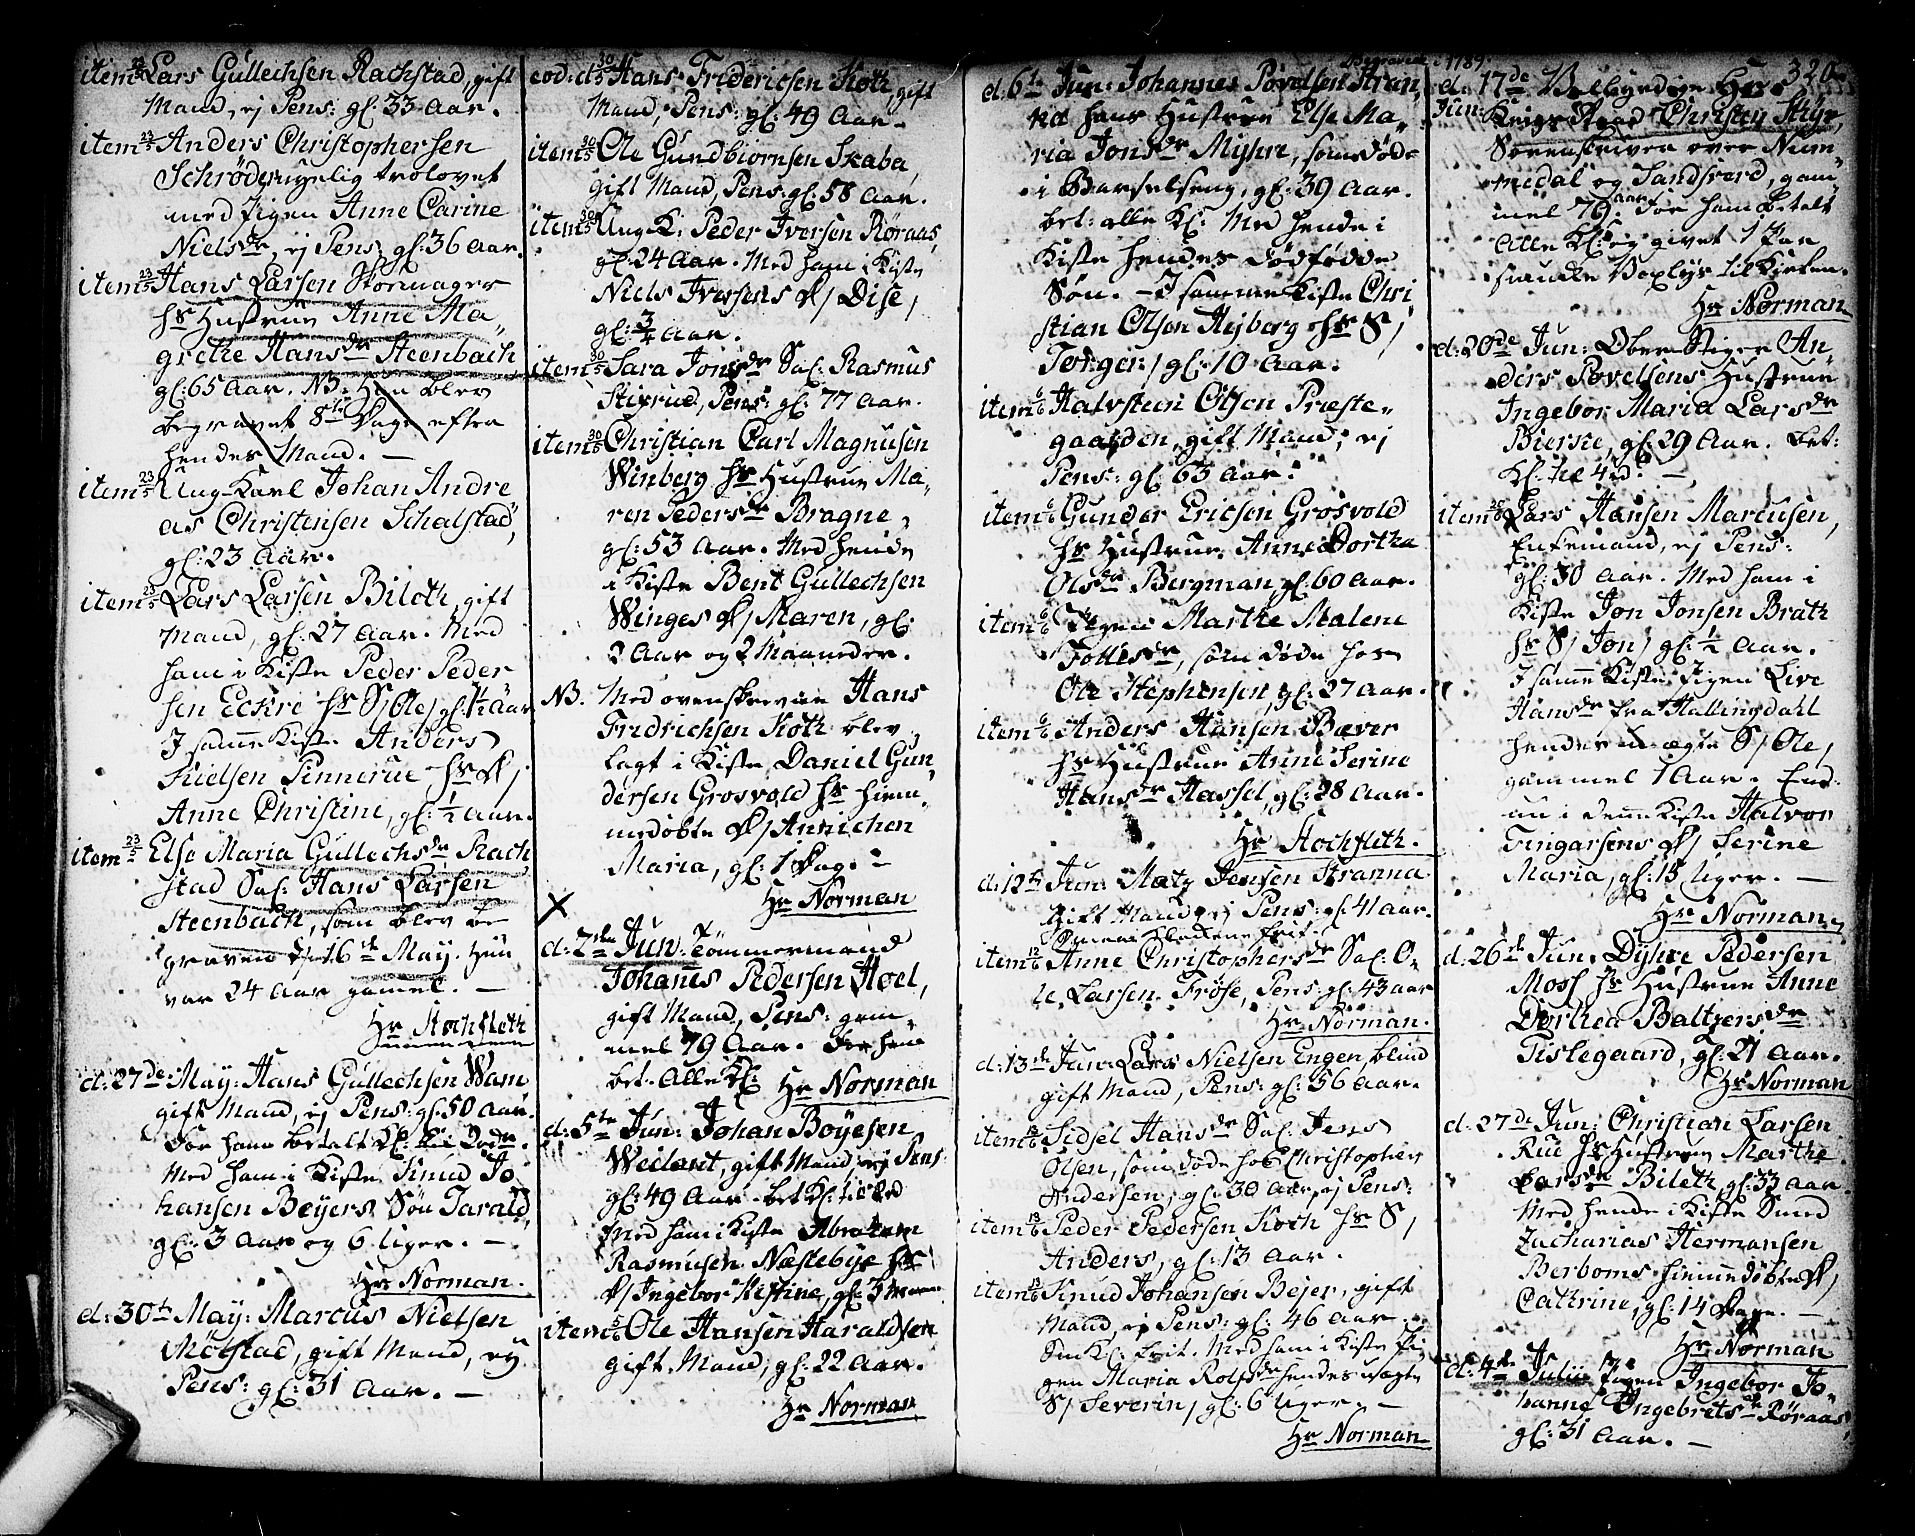 item 23/5 Lars Gullechsen Rachstad, gift
Mand, ej Pens: gl: 33 Aar.
item 23/5 Anders Christophersen
Schrøder, ugelig trolovet
med Pigen Anne Carine
Niels dr, ej Pens, gl: 36 Aar.
item 23/5 Hans Larsen Stormager
hs Hustrue Anne Ma„
grethe Hans dr Steenbach,
gl: 65 Aar. NB: Hun blev
begravet 8te Dagen efter
hendes Mand. —
item 23/5 Ung-Karl Johan Andre
as Christensen Schalstad,
gl: 23 Aar.
item 23/5 Lars Larsen Bileth, gift
Mand, gl: 27 Aar. Med
ham i Kiste Peder Peder
sen Eckre hs S/ Ole/ gl: 1½ Aar
I samme Kiste Anders
Nielsen Pinnerue hs D/
Anne Christine, gl: ½ Aar.
item 23/5 Else Maria Gullechs dr Rach„
stad Sal: Hans Larsen
Steenbach, som blev be
graven d. 16de May. Hun
var 24 Aar gamel. —
Hr Stochfleth
d: 27de May: Hans Gullechsen Wam
gift Mand, ej Pens: gl: 50 Aar.
For ham betalt Kl: til
Med ham i Kiste Knud Jo
hansen Beyers Søn Tarald,
gl: 3 Aar og 6 Uger. —
Hr Norman.
d: 30te May: Marcus Nielsen
Mølstad, gift Mand, ej
Pens: gl: 31 Aar. —
eod: d 30/5 Hans Fridericsen Koth, gift
Mand, Pens: gl: 49 Aar.
item 30/5 Ole Gundbiørnsen Skaba,
gift Mand, Pens: gl: 58 Aar.
item 30/5 Ung K: Peder Iversen Røraas,
gl: 24 Aar. Med ham i Kiste
Niels Iversens D/ Dise/
gl: ¾ Aar.
item 30/5 Sara Jons dr Sal: Rasmus
Stigrud, Pens: gl: 77 Aar.
item 30/5 Christian Carl Magnusen
Winberg hs Hustrue Ma„
ren Peders dr Bragne,
gl: 53 Aar. Med hende
i Kiste Bent Gullechsen
Winges D/ Maren, gl:
2 Aar og 2 Maaneder.
NB. Med ovenskrevne Hans
Fredrichsen Koth blev
lagt i Kiste Daniel Gun„
dersen Grosvold hs hiem„
medøbte D/ Annichen
Maria, gl: 1 Dag. —
Hr Norman
d: 2den Jun. Tømmermand
Johannes Pedersen Hoel,
gift Mand, Pens: gam„
mel 79 Aar. For ham
bet: alle Kl: Hr Norman
d: 5te Jun: Johan Boyesen
Weilant, gift Mand, ej Pens:
gl: 49 Aar bet Kl: til
Med ham i Kiste Abraham
Rasmusen Næstebye hs
D/ Ingebor Kistine, gl: 3
item 5/6 Ole Hansen Haraldsen
gift Mand, gl: 22 Aar.
Hr Norman
Begravne 1789. 320
d: 6te Jun: Johannes Povelsen Stran„
na hans Hustrue Else Ma„
ria Jons dr Myhre, som døde
i Barselseng, gl: 39 Aar.
bet: alle Kl: Med hende i
Kiste hendes dødfødde
Søn. — I samme Kiste Chri
stian Olsen Hejberg hs S/
Torger/ gl: 10 Aar.
item 6/6 Halvsteen Olsen Præste„
gaarden, gift Mand, ej
Pens: gl: 63 Aar.
item 6/6 Gunder Ericsen Grosvold
hs Hustrue Anne Dorthe
Ols dr Bergman, gl: 60 Aar.
item 6/6 Pigen Marthe Malene
Tolles dr, som døde hos
Ole Stephensen, gl: 27 Aar.
item 6/6 Anders Hansen Bæver
hs Hustrue Anne Serine
Hans dr Hassel, gl: 28 Aar.
Hr Stochfleth.
d: 12te Jun: Matz Jensen Stranna
gift Mand, ej Pens: gl: 41 Aar.
Klokkene frit.
item 12/6 Anne Christophers dr Sal: O„
le Larsen Frøse, Pens: gl: 43 Aar
Hr Norman.
d: 13de Jun: Lars Nielsen Engen, blind
gift Mand, Pens: gl: 56 Aar.
item 13/6 Sidsel Hans dr Sal: Jens
Olsen, som døde hos Christopher
Andersen, gl: 30 Aar, ej Pens:
item 13/6 Peder Pedersen Koch hs S/
Anders, gl: 13 Aar.
item 13/6 Knud Johansen Bejer, gift
Mand, ej Pens: gl: 46 Aar.
Smkl: frit. Med ham i Kiste Pi„
gen Maria Rolfs dr hendes uægte
S/ Severin/ gl: 6 Uger. —
Hr Norman
d: 17de Velbyrdige Hr:
Jun: Krigs Raad Christen Styr,
Sorenskriver over Num„
medal og Sandsverd, gam„
mel 79 Aar. For ham betalt
alle Kl: og givet 1 Par
smukke Voxlys til Kirken.
Hr Norman
d: 20de Jun: Ober Stiger An„
ders Povelsens Hustrue
Ingebor Maria Lars dr
Bierke, gl: 29 Aar. bet:
Kl: til 4 rd. —
item 20/6 Lars Hansen Marcusen,
Enkemand, ej Pens:
gl: 50 Aar. Med ham i
Kiste Jon Jonsen Brath
hs S/ Jon/ gl: ½ Aar.
I samme Kiste Pigen Live
Hans dr fra Hallingdahl
hendes uægte S/ Ole/
gammel 1 Aar. End„
nu i denne Kiste Halvor
Fingarsens D/ Serine
Maria, gl: 15 Uger. —
Hr Norman
d: 26de Jun. Dyhre Pedersen
Moss hs Hustrue Anne
Dorthea Baltzers dr
Tislegaard, gl: 21 Aar.
Hr Norman
d: 27de Jun: Christian Larsen
Rue hs Hustrue Marthe
Lars dr Bileth, gl: 33 Aar.
Med hende i Kiste Smed
Zacharias Hermansen
Berboms hiemmedøbte D/
Cathrine, gl: 14 Dage. —
Hr Norman
d: 4de Julii Pigen Ingebor Jo„
hanne Ingebrets dr Røraas,
gl: 31 Aar. —